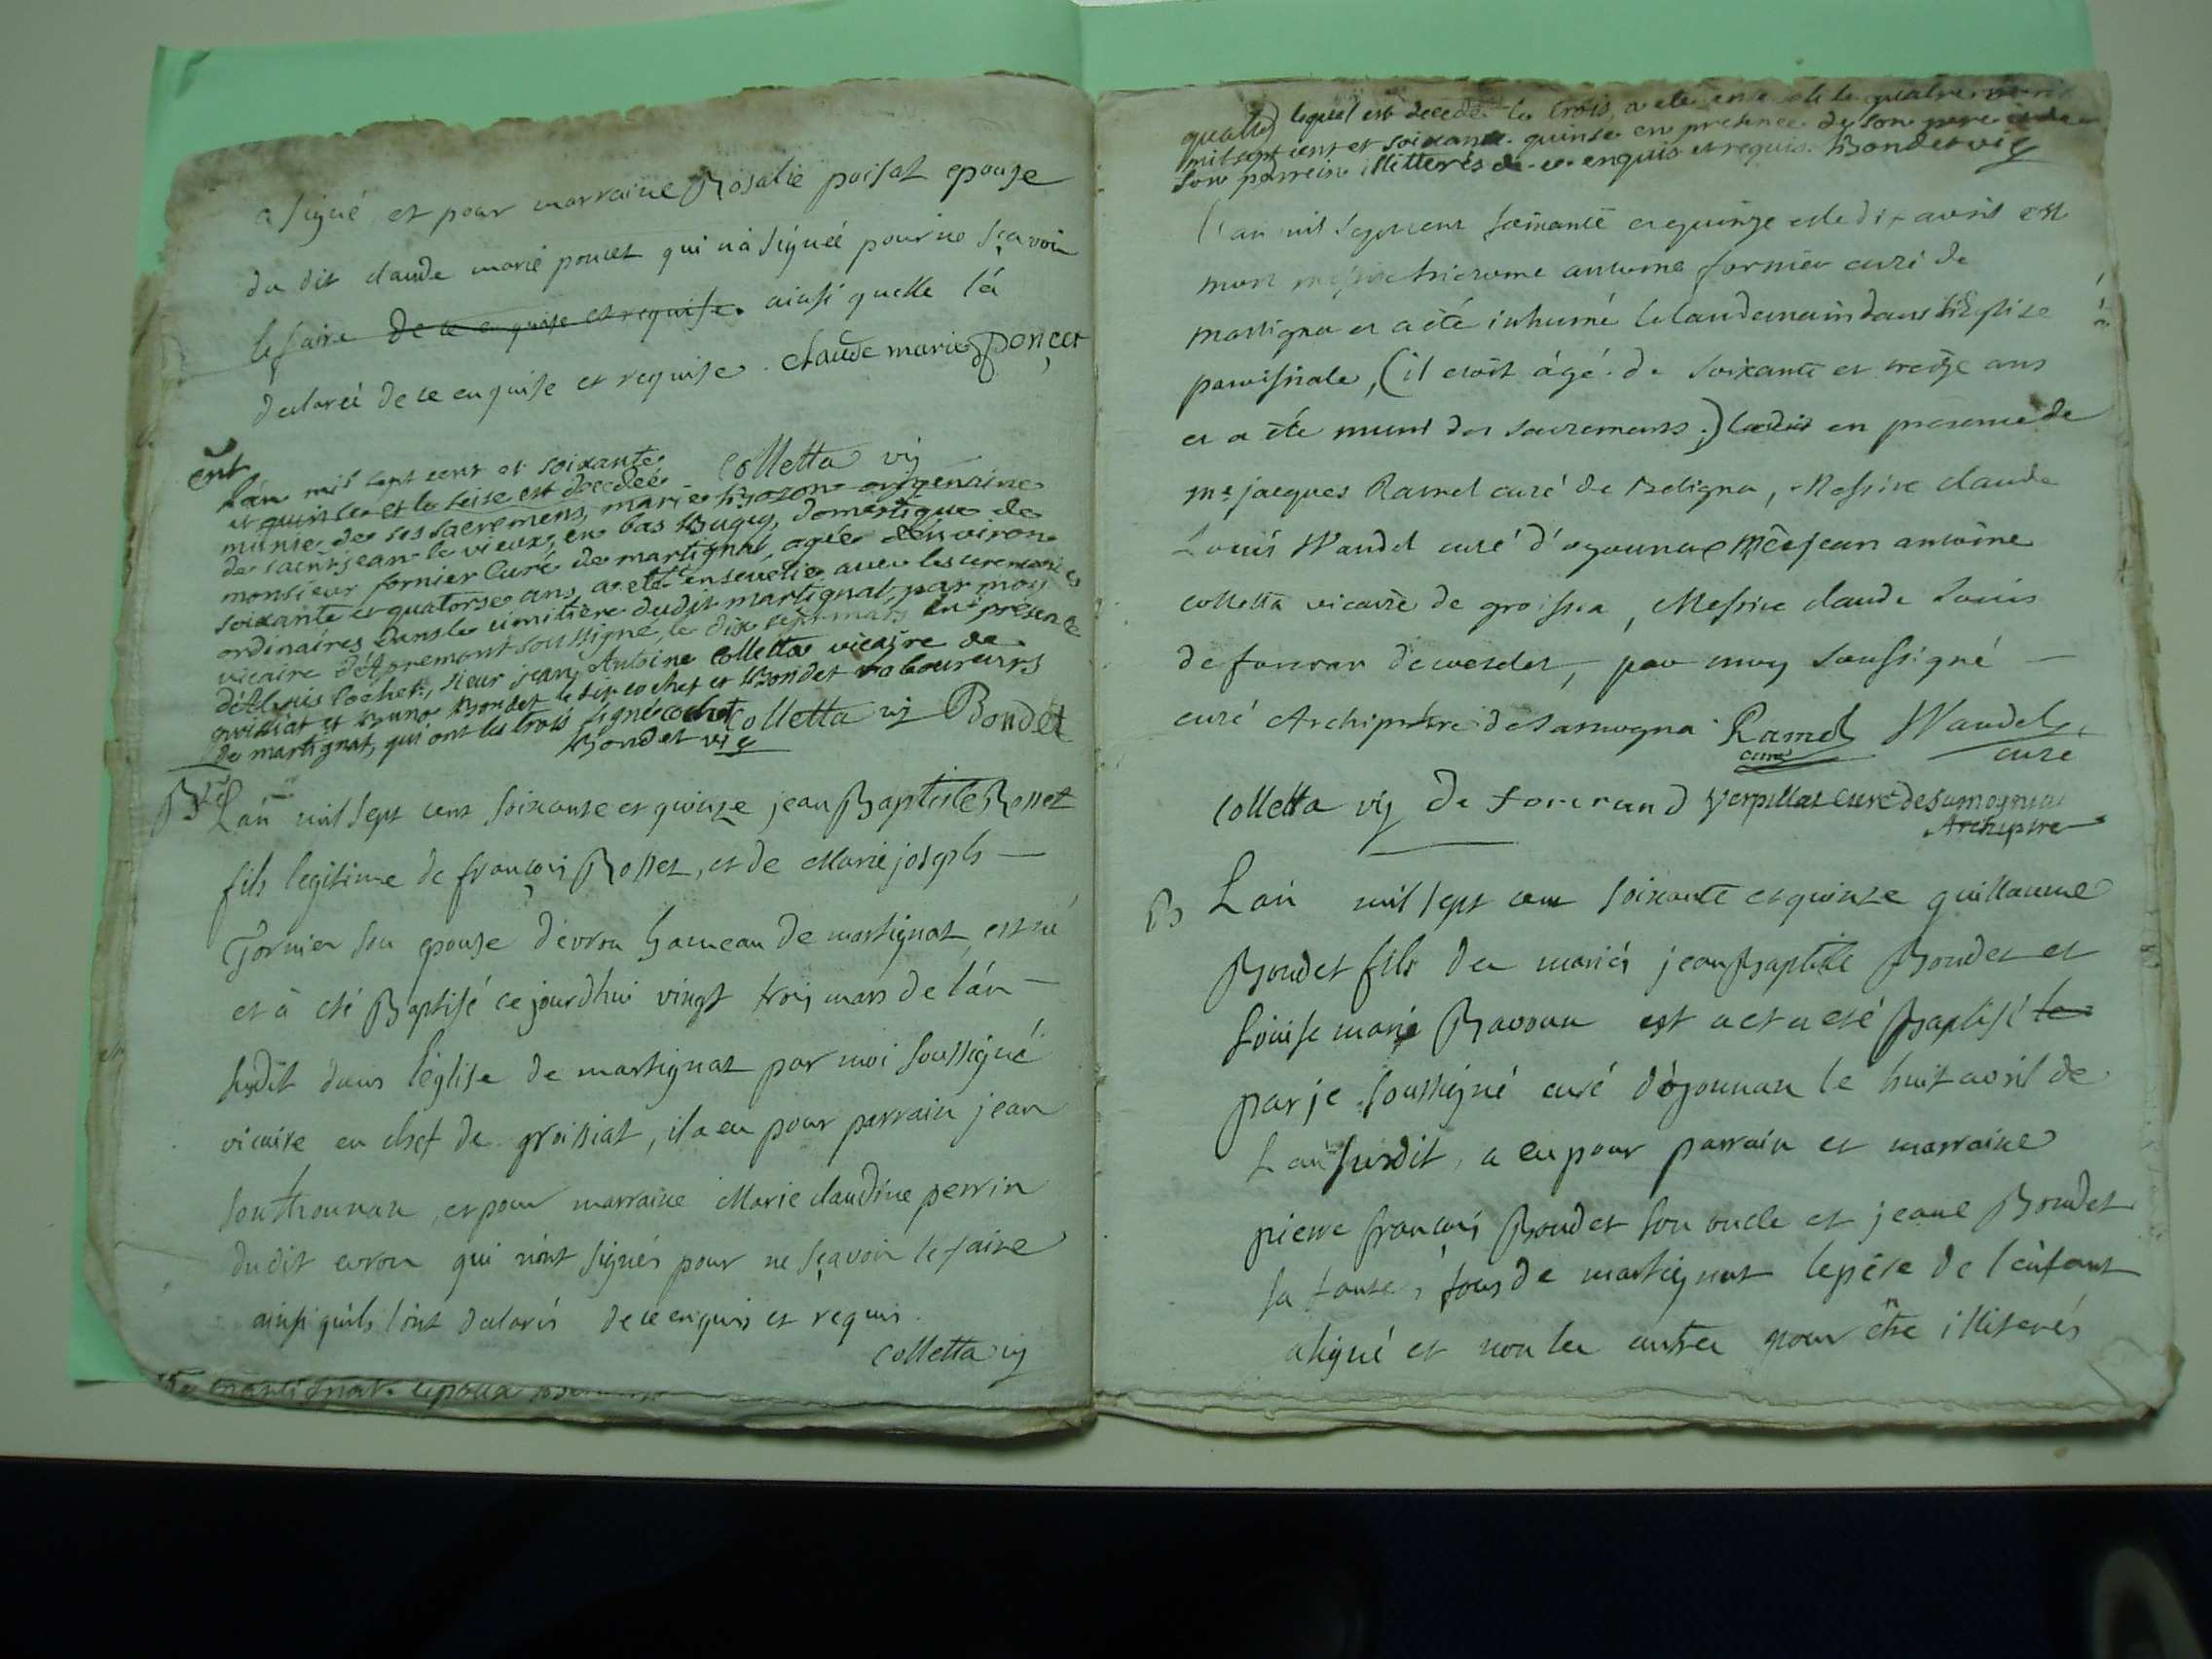 a signé, et pour marraine Rosalie poisat epouse
du dit claude marie poncet qui n'a signée pour ne sçavoir
le faire de ce enquise et requise. ainsi quelle l'a
declareé de ce enquise et requise. claude marie poncet
colletta vic
ent
L'an mil sept cent et soixante
et quinse et le seise est decedeé
munie de ses sacremens, marie Bozon origenaire
de saint jean le vieux, en bas Bugey, domestique de
monsieur fornier Curé de martignat, agée d'environ
soixante et quatorse ans, a eté ensevelie avec les ceremonies
ordinaires dans le cimitière dudit martignat, par moy
vicaire d'Apremont soussigné, le dix sept mars en presence
d'Alexis cochet, sieur jean Antoine Colletta vicaire de
groissiat et Bruno Bondet le dit cochet et Bondet laboureurs
de martignat, qui ont les trois signé cochet Colletta vic Bondet
Bondet vic
Bte
L'an mil sept cent soixante et quinze jean Baptiste Rosset
fils legitime de françois Rosset, et de Marie joseph
fornier son epouse d'evron hameau de martignat, est né
et à eté Baptisé ce jourdhui vingt trois mars de l'an
susdit dans l'église de martignat par moi soussigné
vicaire en chef de groissiat, il a eu pour parrain jean
Sonthonnax, et pour marraine Marie claudine perrin
dudit evron qui n'ont signés pour ne sçavoir le faire
ainsi quils l'ont declarés de ce enquis et requis.
colletta vic
martignat
lequel est decedé le trois, a eté le quatre
mil sept cent et soixante quinse en presence de son pere
son parrein illitterés de ce enquis et requis. Bondet vic
l'an mil sept cent soixante et quinze et le dix avril est
mort messire hierome antoine fornier curé de
martigna et a été inhumé le landemain dans l'Eglise
paroissiale, (il etoit âgé de soixante et treize ans
et a éte muni des sacrements.) en presence de
mre jacques Ramel curé de Beligna, Messire claude
Louis Wandel curé d'oyonnax jean antoine
colletta vicaire de groissia, Messire claude Louis
de forcran , par moy soussigné
curé Archiprêtre de Samogna. Ramel Wandel
curé curé
colletta vic De forcrand Verpillat curé de samognia
Archiptre
B
L'an mil sept cent soixante et quinze guillaume
Bondet fils des mariés jean Baptiste Bondet et
Louise marie est et a eté Baptisé le
par je soussigné curé d'oyonnax le huit avril de
L'an susdit, a eu pour parrain et marraine
pierre françois Bondet son oncle et jeane Bondet
sa tante, tous de martignat le père de l'enfant
a signé et non les autres pour être illiterés